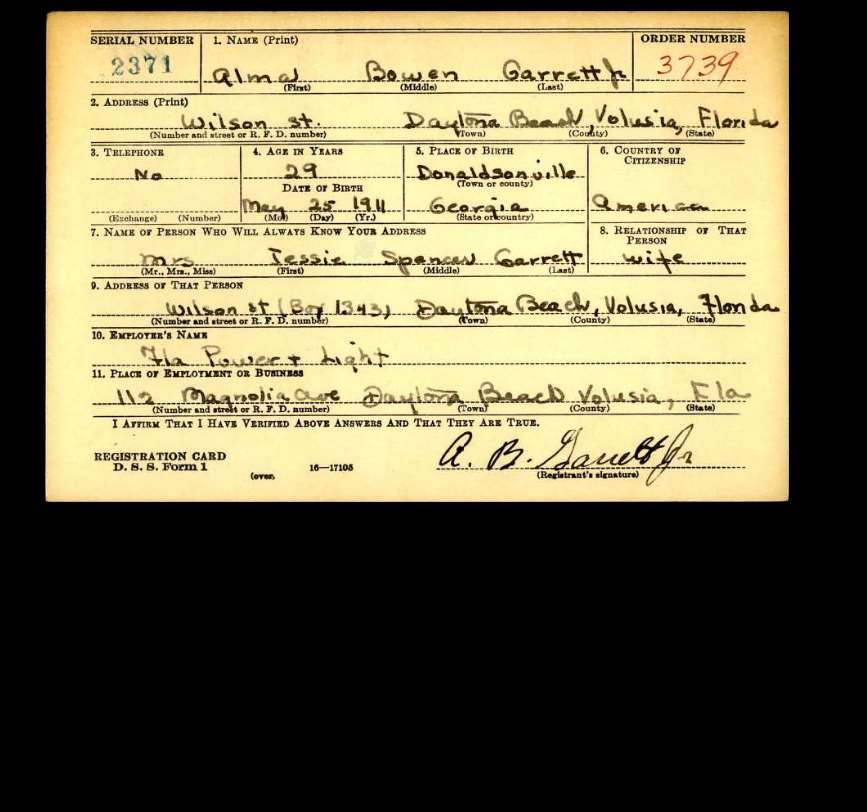 SERIAL NUMBER 1. NAME (Print) ORDER NUMBER
2371 Alma Bowen Garrett Jr 3739
(First) (Middle) (Last)
2. ADDRESS (Print)
Wilson St. Daytona Beach, Volusia, Florida
(Number and street or R. F. D. number) (Town) (County) (State)
3. TELEPHONE 4. AGE IN YEARS 5. PLACE OF BIRTH 6. COUNTRY OF CITIZENSHIP
No 29 Donaldsonville
DATE OF BIRTH (Town or county)
May 25 1911 Georgia American
(Exchange) (Number) (Mo.) (Day) (Yr.) (State or country)
7. NAME OF PERSON WHO WILL ALWAYS KNOW YOUR ADDRESS 8. RELATIONSHIP OF THAT PERSON
Mrs Jessie Spencer Garrett wife
(Mr., Mrs., Miss) (First) (Middle) (Last)
9. ADDRESS OF THAT PERSON
Wilson St (Box 1343) Daytona Beach, Volusia, Florida
(Number and street or R. F. D. number) (Town) (County) (State)
10. EMPLOYER'S NAME
Fla Power + Light
11. PLACE OF EMPLOYMENT OR BUSINESS
112 Magnolia Ave Daytona Beach Volusia, Fla
(Number and street or R. F. D. number) (Town) (County) (State)
I AFFIRM THAT I HAVE VERIFIED ABOVE ANSWERS AND THAT THEY ARE TRUE.
REGISTRATION CARD A. B. Garrett Jr
D. S. S. Form 1 (over) 16—17105 (Registrant's signature)